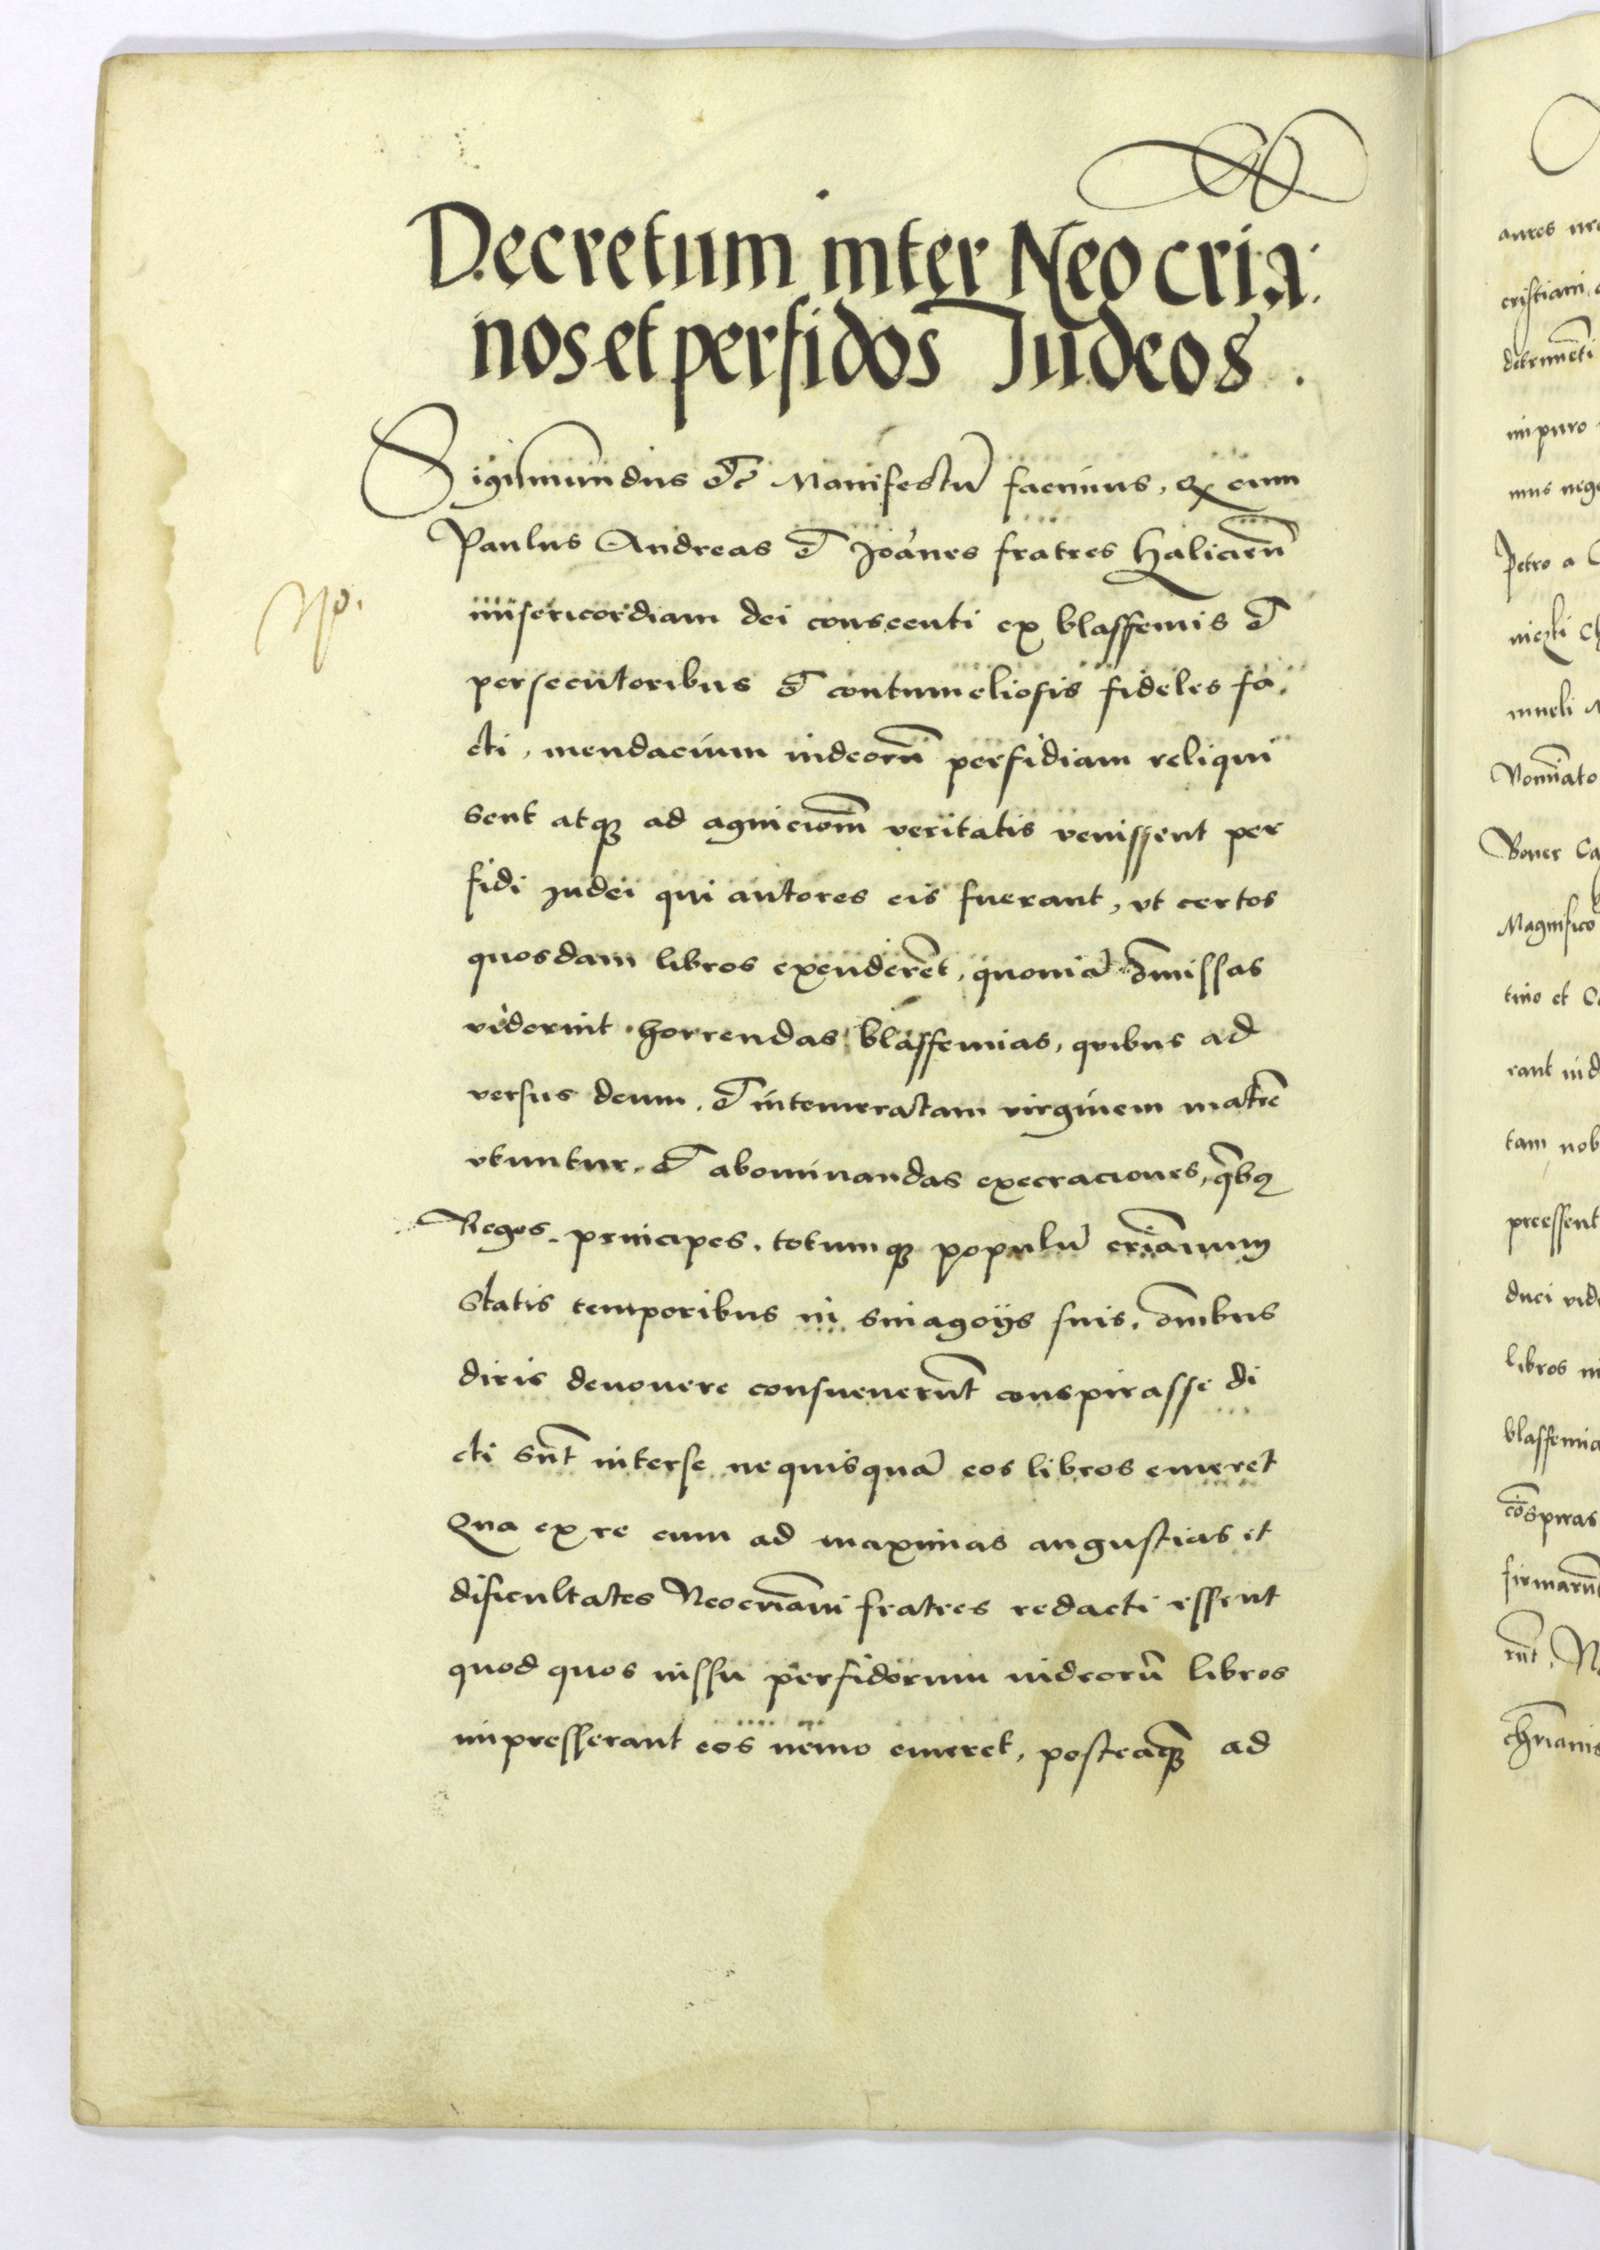 Decretum inter Neo cria:
nos et perfidos Judeos.
Sigismundus etc Manifestū facimus, q cum
Paulus Andreas et Joānes fratres Halicien̄
misericordiam dei consecuti ex blasfemis et
persecutoribus et contumeliosis fideles fa,
cti, mendacium iudeorū perfidiam reliqui
sent atq ad agnicionē veritatis venissent per
fidi Judei qui autores eis fuerant, vt certos
quosdam libros exenderēt, quoniā omissas
viderint horrendas blasfemias, quibus ad
versus deum, et intemeratam virginem matrē
vtuntur, et abominandas execraciones, qbq
Reges, principes, totumq populū crianum
statis temporibus in sinagogis suis, omībus
diris devovere consueverūnt conspirasse di
cti sūnt interse ne quisquā eos libros emeret
Qua ex re cum ad maximas angustias et
dificultates Neocriani fratres redacti essent
quod quos iussu perfidorum iudeorū libros
impresserant eos nemo emeret, posteaq ad
cristiani
impuro
Petro a
Magnifico
tam nob
preessent
libros
blasfemia